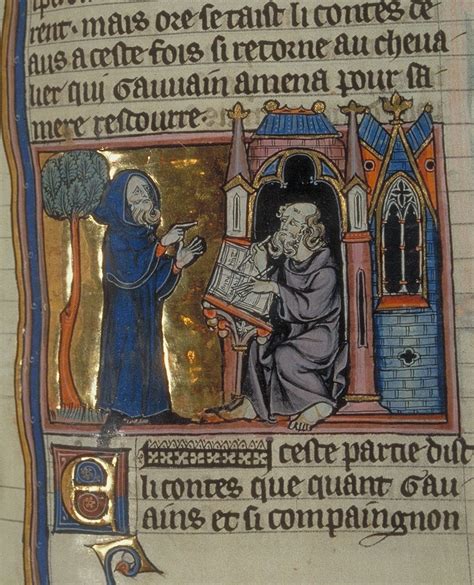 rent. mais ore se taist li contes de
aus a ceste fois si retorne au cheua
lier qui Gauuain amena pour sa
mere rescourre.
En ceste partie dist
li contes que quant Gau
uains et si compaingnon